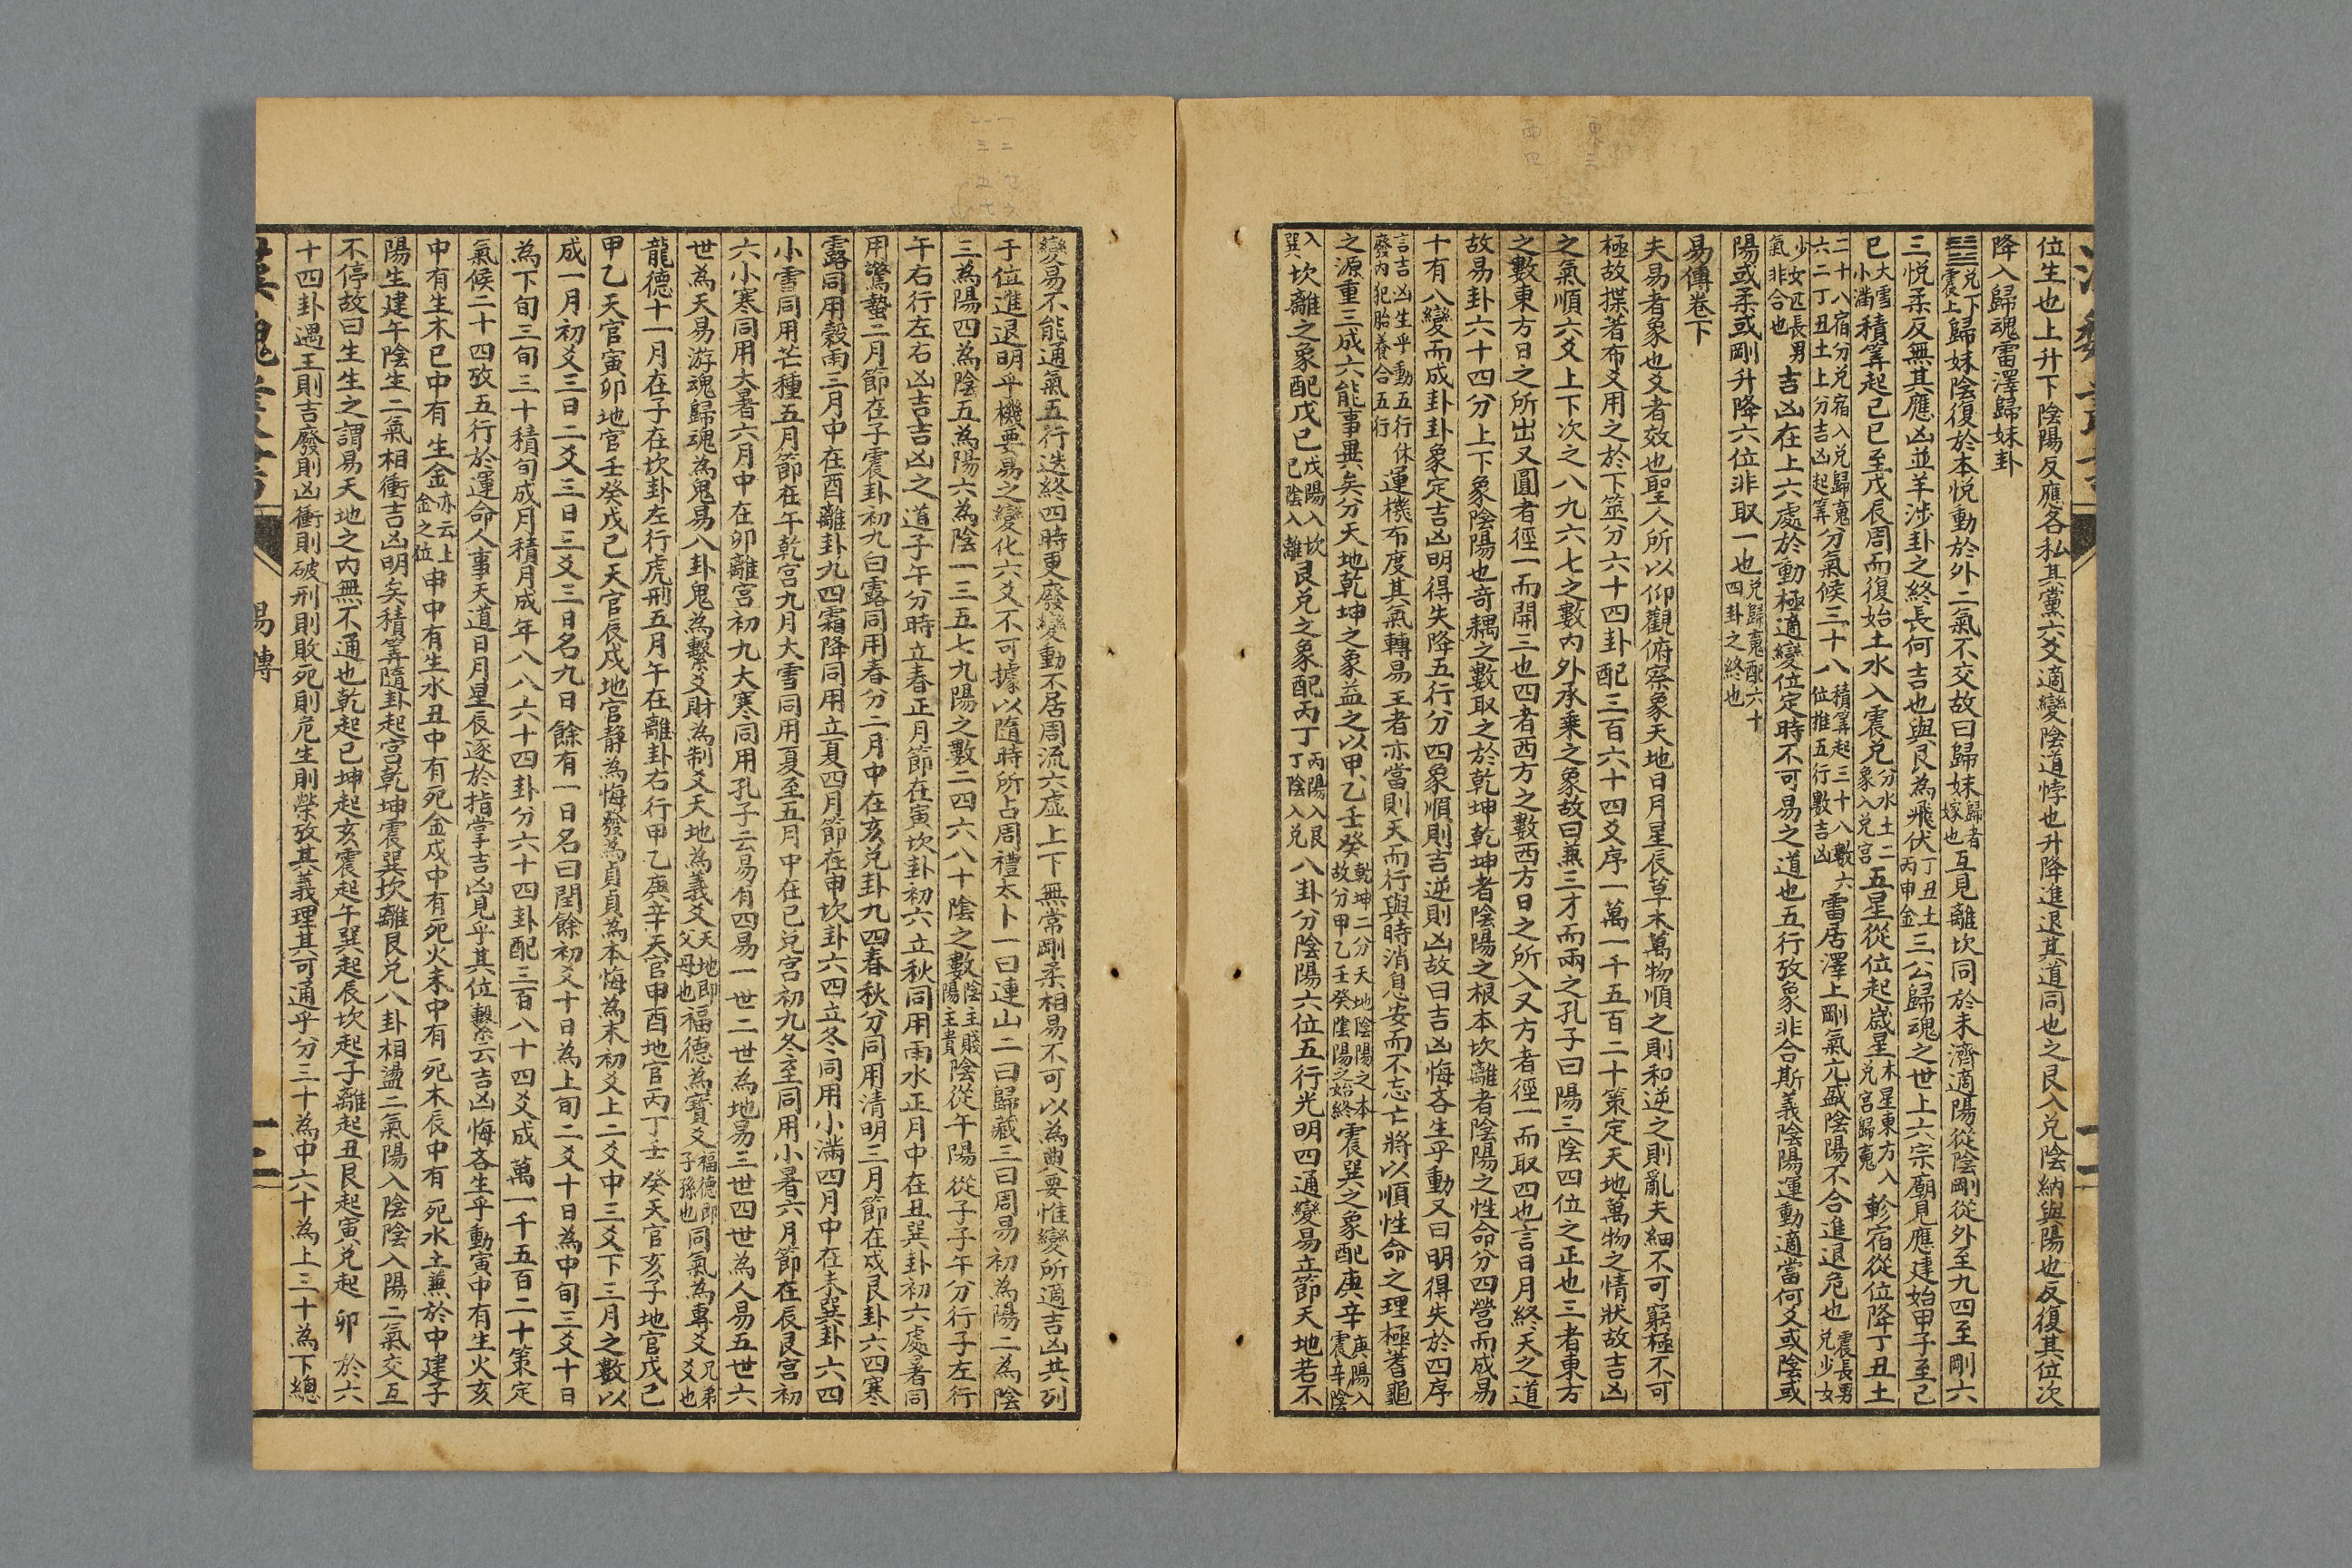 位生也上升下陰陽反應各私其黨六爻適變陰道悖也升降進退其道同也之艮入兌陰納與陽也反復其位次
降入歸魂雷澤歸妹卦
䷵兌下震上歸妹陰復於本悦動於外二氣不交故曰歸妹歸者嫁也互見離坎同於未濟適陽從陰剛從外至九四至剛六
三悦柔反無其應凶並羊涉卦之終長何吉也與艮為飛伏丁丑土丙申金三公歸魂之世上六宗廟見應建始甲子至己
巳大雪小滿積筭起己巳至戊辰周而復始土水入震兌分水土二象入兌宮五星從位起嵗星木星東方入兌宮歸䰟軫宿從位降丁丑土
二十八宿分兌宿入兌歸䰟六二丁丑土上分吉凶起筭分氣候三十八積筭起三十八數六位推五行數吉凶雷居澤上剛氣亢盛陰陽不合進退危也震長男兌少女
少女匹長男氣非合也吉凶在上六處於動極適變位定時不可易之道也五行攷象非合斯義陰陽運動適當何爻或陰或
陽或柔或剛升降六位非取一也兌歸䰟配六十四卦之終也
易傳卷下
夫易者象也爻者效也聖人所以仰觀俯察象天地日月星辰草木萬物順之則和逆之則亂夫細不可窮極不可
極故揲蓍布爻用之於下筮分六十四卦配三百六十四爻序一萬一千五百二十策定天地萬物之情狀故吉凶
之氣順六爻上下次之八九六七之數內外承乘之象故曰兼三才而兩之孔子曰陽三陰四位之正也三者東方
之數東方日之所出又圓者徑一而開三也四者西方之數西方日之所入又方者徑一而取四也言日月終天之道
故易卦六十四分上下象陰陽也奇耦之數取之於乾坤乾坤者陰陽之根本坎離者陰陽之性命分四營而成易
十有八變而成卦卦象定吉凶明得失降五行分四象順則吉逆則凶故曰吉凶悔吝生乎動又曰明得失於四序
言吉凶生乎動五行休廢內犯胎養合五行運機布度其氣轉易王者亦當則天而行與時消息安而不忘亡將以順性命之理極蓍龜
之源重三成六能事畢矣分天地乾坤之象益之以甲乙壬癸乾坤二分天地陰陽之本故分甲乙壬癸陰陽之始終震巽之象配庚辛庚陽入震辛陰
入巽坎離之象配戊己戊陽入坎己陰入離艮兌之象配丙丁丙陽入艮丁陰入兌八卦分陰陽六位五行光明四通變易立節天地若不
變易不能通氣五行迭終四時更廢變動不居周流六虛上下無常剛柔相易不可以為典要惟變所適吉凶共列
于位進退明乎機要易之變化六爻不可據以隨時所占周禮太卜一曰連山二曰歸藏三曰周易初為陽二為陰
三為陽四為陰五為陽六為陰一三五七九陽之數二四六八十陰之數陰主賤陽主貴陰從午陽從子子午分行子左行
午右行左右凶吉吉凶之道子午分時立春正月節在寅坎卦初六立秋同用雨水正月中在丑巽卦初六處暑同
用驚蟄二月節在子震卦初九白露同用春分二月中在亥兌卦九四春秋分同用清明三月節在戌艮卦六四寒
露同用穀雨三月中在酉離卦九四霜降同用立夏四月節在申坎卦六四立冬同用小滿四月中在未巽卦六四
小雪同用芒種五月節在午乾宮九月大雪同用夏至五月中在巳兌宮初九冬至同用小暑六月節在辰艮宮初
六小寒同用大暑六月中在卯離宮初九大寒同用孔子云易有四易一世二世為地易三世四世為人易五世六
世為天易游魂歸魂為鬼易八卦鬼為繫爻財為制爻天地為義爻天地即父母也福德為寶爻福德即子孫也同氣為專爻兄弟爻也
龍德十一月在子在坎卦左行虎刑五月午在離卦右行甲乙庚辛天官申酉地官丙丁壬癸天官亥子地官戊己
甲乙天官寅卯地官壬癸戊己天官辰戌地官静為悔發為貞貞為本悔為末初爻上二爻中三爻下三月之數以
成一月初爻三日二爻三日三爻三日名九日餘有一日名曰閏餘初爻十日為上旬二爻十日為中旬三爻十日
為下旬三旬三十積旬成月積月成年八八六十四卦分六十四卦配三百八十四爻成萬一千五百二十策定
氣候二十四攷五行於運命人事天道日月星辰逐於指掌吉凶見乎其位繫云吉凶悔吝生乎動寅中有生火亥
中有生木巳中有生金亦云上金之位申中有生水丑中有死金戌中有死火未中有死木辰中有死水土兼於中建子
陽生建午陰生二氣相衝吉凶明矣積筭隨卦起宮乾坤震巽坎離艮兌八卦相盪二氣陽入陰陰入陽二氣交互
不停故曰生生之謂易天地之內無不通也乾起巳坤起亥震起午巽起辰坎起子離起丑艮起寅兌起卯於六
十四卦遇王則吉廢則凶衝則破刑則敗死則危生則榮攷其義理其可通乎分三十為中六十為上三十為下總
易傳
十二